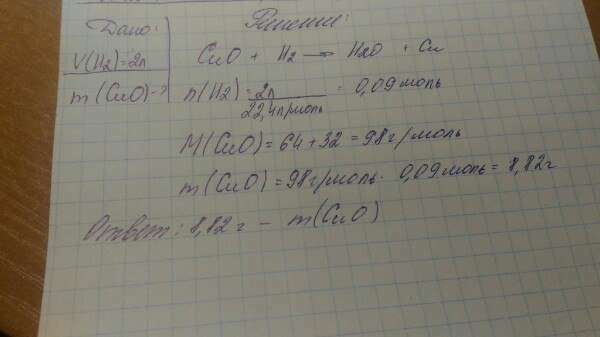 Дано:
V(H2)=2л
m(CuO)-?
Решение:
CuO + H2 → H2O + Cu
n(H2) = 2л / 22,4л/моль = 0,09моль
M(CuO) = 64+32 = 98г/моль
m(CuO) = 98г/моль · 0,09моль = 8,82г
Ответ: 8,82г - m(CuO)